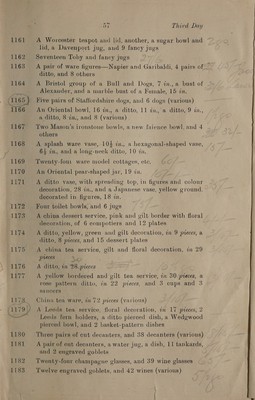 57
Third Day
1161 A Worcester teapot and lid, another, a sugar bowl and
lid, a Davenport jug, and 9 fancy jugs
1162 Seventeen Toby and fancy jugs
1163 A pair of ware figures—Napier and Garibaldi, 4 pairs of
ditto, and 8 others
1164 A Bristol group of a Bull and Dogs, 7 in., a bust of
Alexander, and a marble bust of a Female, 15 in.
1165 Five pairs of Staffordshire dogs, and 6 dogs (various)
1166 An Oriental bowl, 16 in., a ditto, 11 in., a ditto, 9 in.,
a ditto, 8 in., and 8 (various)
1167 Two Mason's ironstone bowls, a new faience bowl and 4
others
1168 A splash ware vase, 10½ in., a hexagonal-shaped vase,
in., and a long-neck ditto, 10 in.
1169 Twenty-four ware model cottages, etc.
1170 An Oriental pear-shaped jar, 19 in.
1171 A ditto vase, with spreading top, in figures and colour
decoration, 28 in., and a Japanese vase, yellow ground
decorated in figures, 18 in.
1172 Four toilet bowls, and 6 jugs
1173 A china dessert service, pink and gilt border with floral
decoration, of 6 compotiers and 12 plates
1174 A ditto, yellow, green and gilt decoration, in 9 pieces, a
ditto, 8 pieces, and 15 dessert plates
1175 A china tea service, gilt and floral decoration, in 29
pieces
1176 A ditto, in 26 pieces
1177 A yellow bordered and gilt tea service, in 30 pieces, a
rose pattern ditto, in 22 pieces, and 3 cups and 3
saucers
1178 China tea ware, in 72 pieces (various)
1179 A Leeds tea service, floral decoration, in 17 pieces, 2
Leeds fern holders, a ditto pierced dish, a Wedgwood
pierced bowl, and 2 basket-pattern dishes
1180 Three pairs of cut decanters, and 38 decanters (various)
1181 A pair of cut decanters, a water jug, a dish, 11 tankards,
and 2 engraved goblets
1182 Twenty-four champagne glasses, and 39 wine glasses
1183 Twelve engraved goblets, and 42 wines (various)